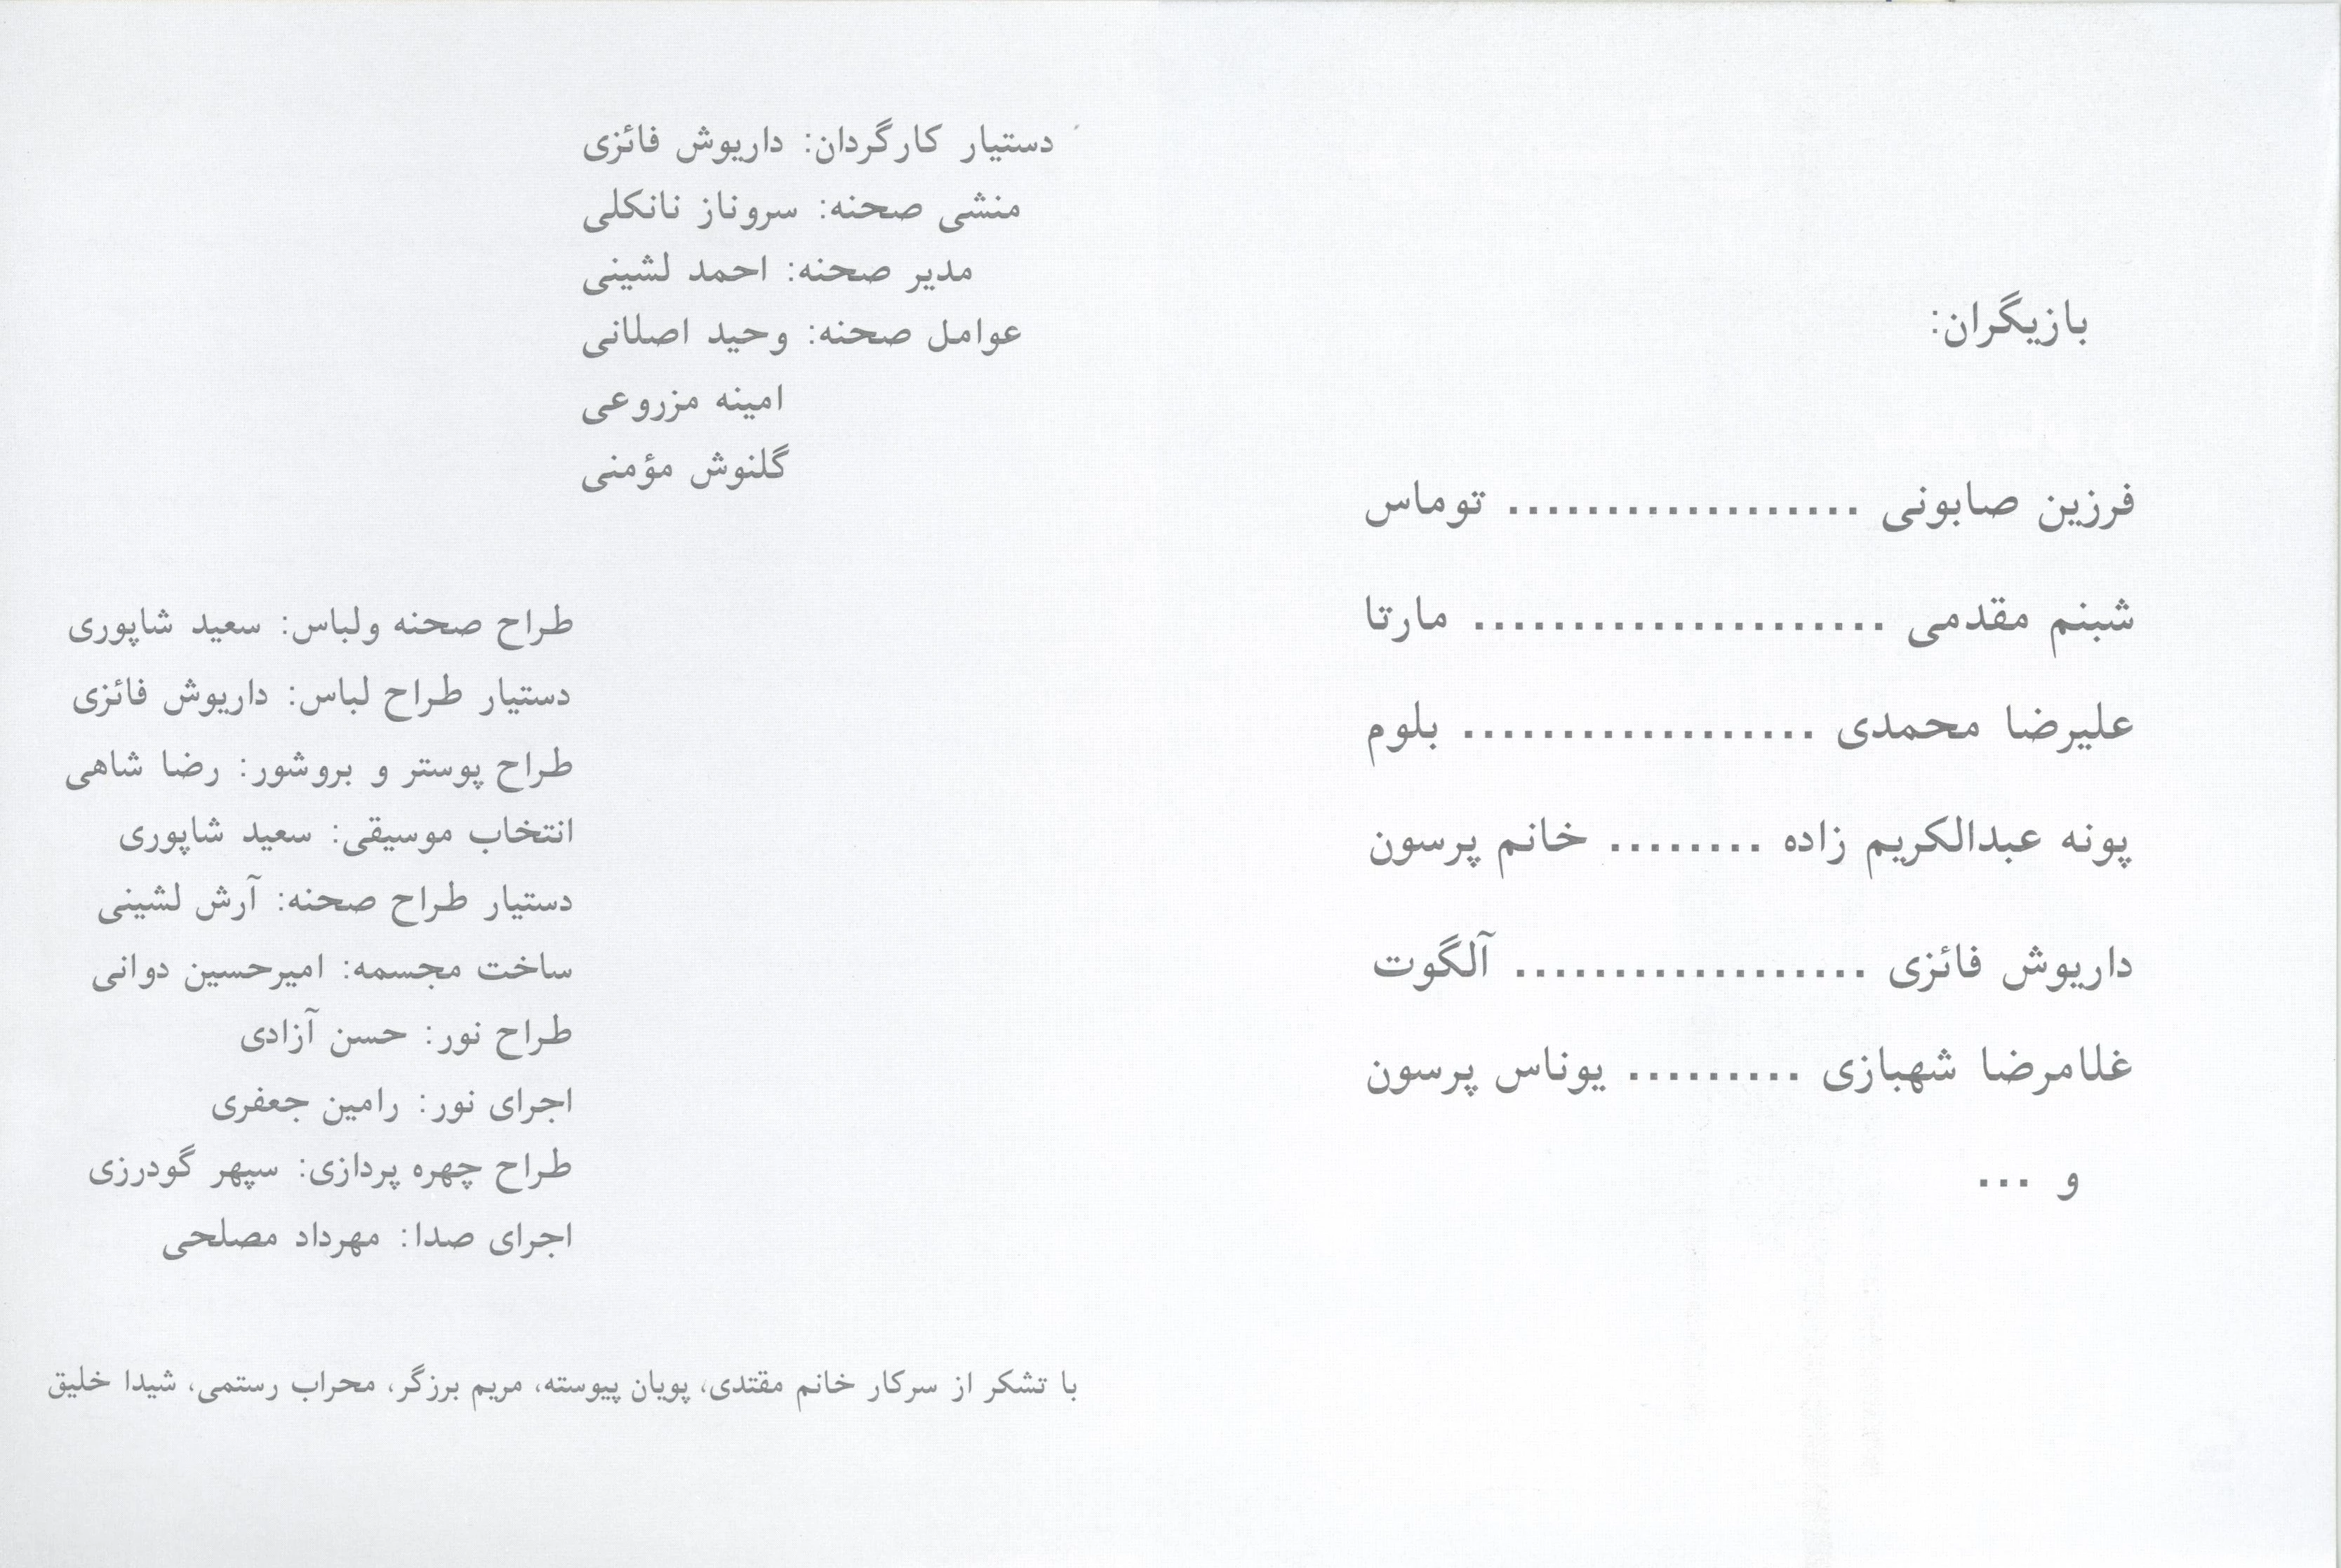 بازیگران:
فرزین صابونی .................. توماس
شبنم مقدمی ..................... مارتا
علیرضا محمدی .................. بلوم
پونه عبدالکریم زاده ........ خانم پرسون
داریوش فائزی .................. آلگوت
غلامرضا شهبازی ......... یوناس پرسون
و ...
دستیار کارگردان: داریوش فائزی
منشی صحنه: سروناز نانکلی
مدیر صحنه: احمد لشینی
عوامل صحنه: وحید اصلانی
امینه مزروعی
گلنوش مؤمنی
طراح صحنه ولباس: سعید شاپوری
دستیار طراح لباس: داریوش فائزی
طراح پوستر و بروشور: رضا شاهی
انتخاب موسیقی: سعید شاپوری
دستیار طراح صحنه: آرش لشینی
ساخت مجسمه: امیرحسین دوانی
طراح نور: حسن آزادی
اجرای نور: رامین جعفری
طراح چهره پردازی: سپهر گودرزی
اجرای صدا: مهرداد مصلحی
با تشکر از سرکار خانم مقتدی، پویان پیوسته، مریم برزگر، محراب رستمی، شیدا خلیق